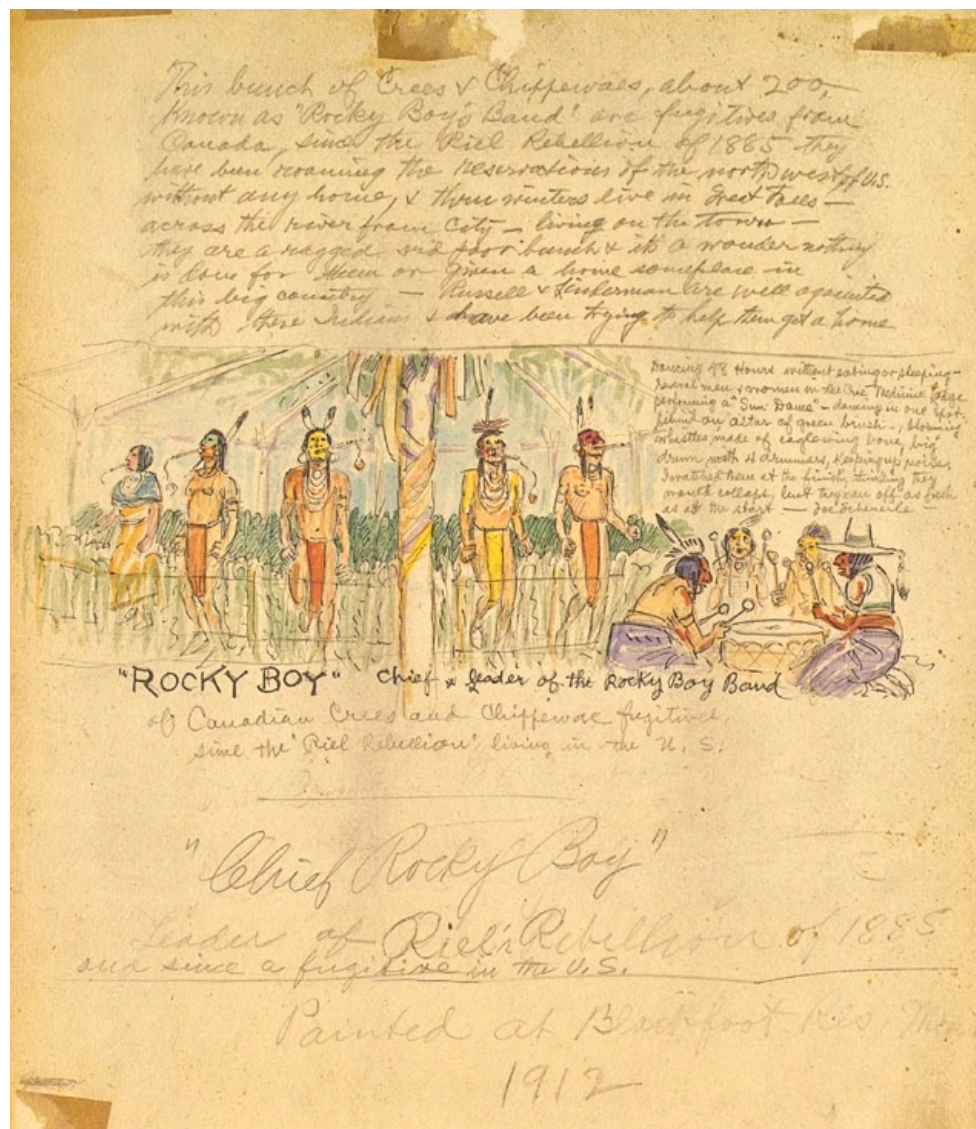 This bunch of Crees & Chippewaes, about 200,
Known as "Rocky Boy's Band" are fugitives from
Canada, since the Riel Rebellion of 1885 they
have been roaming the reservations of the northwest of U.S.
without any home, & three winters live in Great Falls —
across the river from City — living on the town —
they are a ragged and poor bunch & its a wonder nothing
is done for them or given a home someplace in
this big country — Russell & Linderman are well aquainted
with these Indians & have been trying to help them get a home
Dancing 48 Hours without eating or sleeping —
several men & women in the Cree Medicine Lodge
performing a "Sun Dance" — dancing in one spot,
behind an altar of green brush —, blowing
whistles made of eaglewing bone, big
drum with 4 drummers, keeping up noise,
I watched them at the finish, thinking they
would collaps, but they ran off as fresh
as at the start — Joe Scheuerle —
"ROCKY BOY" Chief & Leader of the Rocky Boy Band
of Canadian Crees and Chippewae fugitives,
since the "Riel Rebellion" living in the U. S.
"Chief Rocky Boy"
Leader of Riel's Rebellion of 1885
and since a fugitive in the U.S.
Painted at Blackfoot Res, Mon
1912